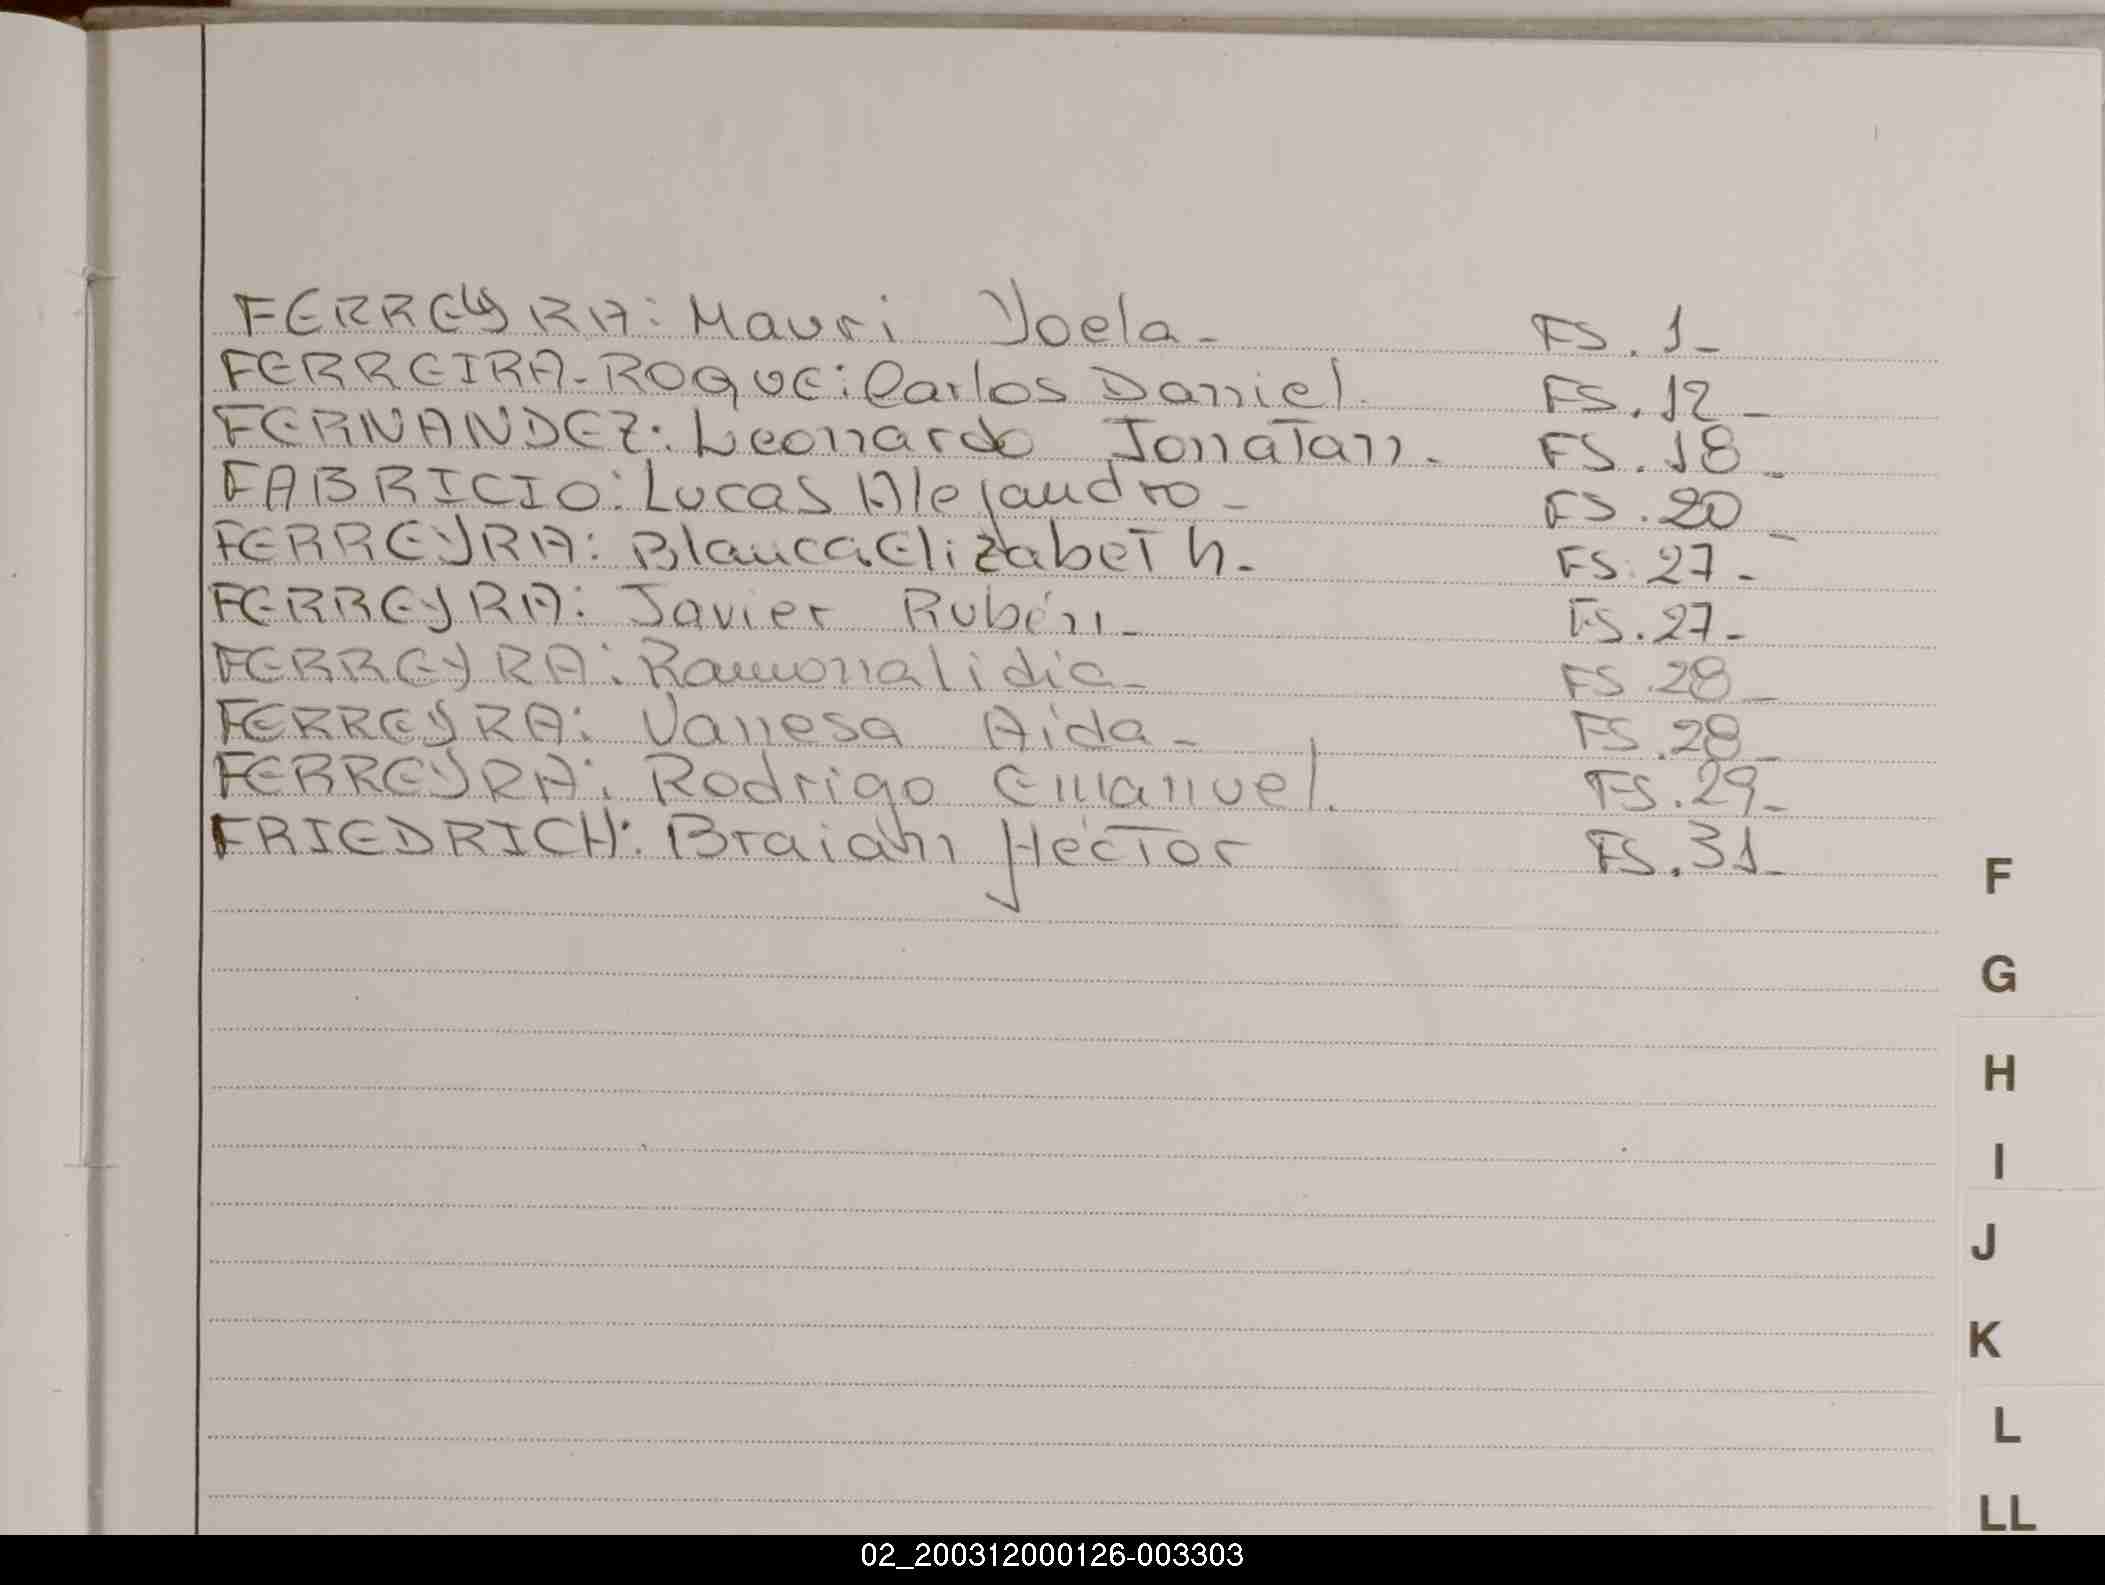 FERREYRA: Mauri Yoela - FS. 1-
FERREIRA-ROQUE: Carlos Daniel. FS. 12-
FERNANDEZ: Leonardo Jonatan. FS. 18-
FABRICIO: Lucas Alejandro- FS. 20-
FERREYRA: Blanca Elizabeth. FS. 27-
FERREYRA: Javier Rubén- FS. 27-
FERREYRA: Ramona lidia- FS. 28-
FERREYRA: Vanesa Aida- FS. 28-
FERREYRA: Rodrigo Emanuel. FS. 29-
FRIEDRICH: Braian Héctor FS. 31-
F
G
H
I
J
K
L
LL
02_200312000126-003303